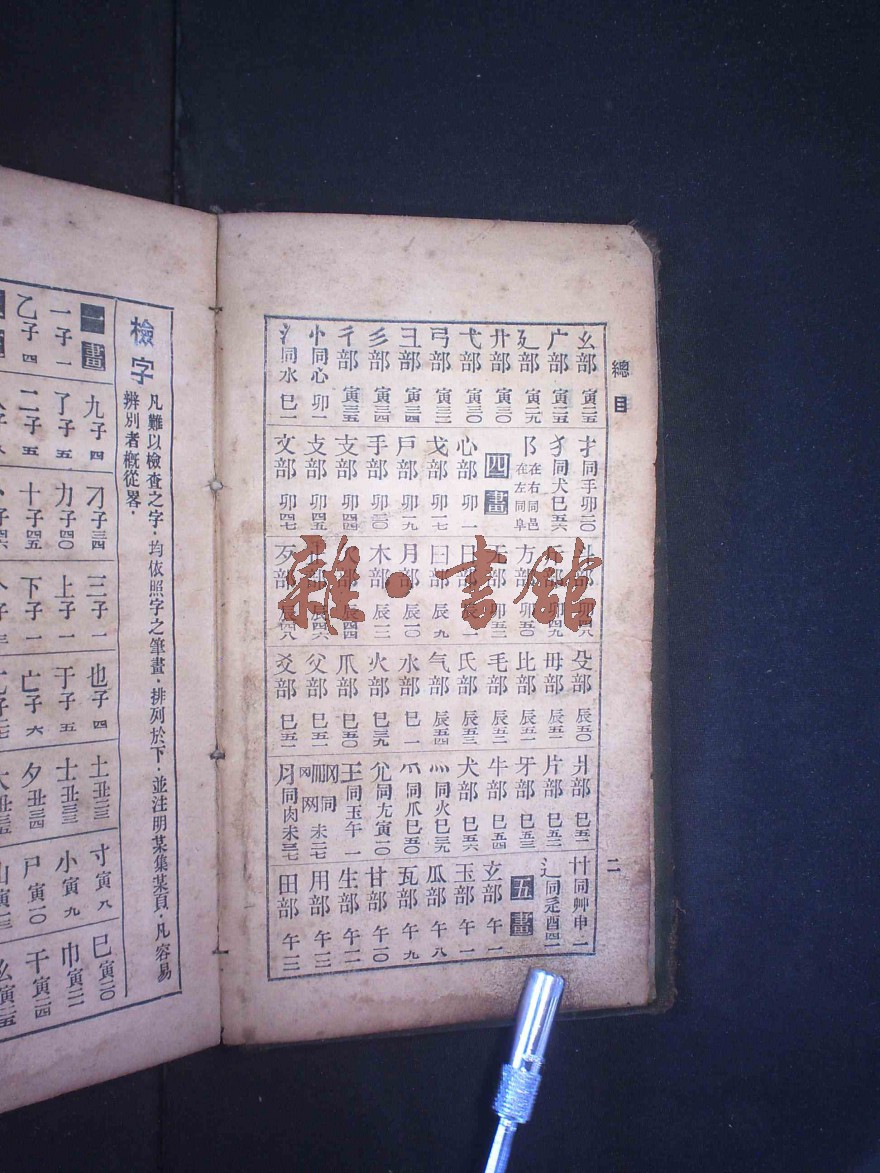 總目
二
幺部 寅二五
广部 寅二五
廴部 寅二九
廾部 寅三〇
弋部 寅三〇
弓部 寅三一
彐部 寅三四
彡部 寅三四
彳部 寅三五
忄同心 卯一
氵同水 巳一
扌同手卯二〇
犭同犬巳五六
阝在右同邑在左同阜
四畫
心部 卯一
戈部 卯一七
戶部 卯一九
手部 卯二〇
支部 卯四四
攴部 卯四五
文部 卯四七
斗部 卯四八
斤部 卯四九
方部 卯五〇
无部 卯五二
日部 辰一
曰部 辰九
月部 辰一〇
木部 辰一二
欠部 辰四四
止部 辰四六
歹部 辰四八
殳部 辰五〇
毋部 辰五一
比部 辰五一
毛部 辰五二
氏部 辰五三
气部 辰五四
水部 巳一
火部 巳三九
爪部 巳五〇
父部 巳五一
爻部 巳五一
爿部 巳五一
片部 巳五二
牙部 巳五二
牛部 巳五四
犬部 巳五六
灬同火巳三九
爫同爪巳五〇
尣同尢寅一〇
王同玉午一
同 未二七
月同肉未三七
艹同艸申一
辶同辵酉四一
五畫
玄部 午一
玉部 午一
瓜部 午八
瓦部 午九
甘部 午一〇
生部 午一一
用部 午一二
田部 午一二
檢字
凡難以檢查之字·均依照字之筆畫·排列於下·並注明某集某頁·凡容易
辨別者概從畧·
一畫
一子一
乙子四
九子四
了子五
二子五
刀子三四
力子四〇
十子四五
三子一
上子一
下子一
也子四
于子五
亡子六
土丑三三
士丑三三
夕丑三四
寸寅八
小寅九
尸寅一〇
巳寅二〇
巾寅二一
干寅二四
幺寅二五
雜·書館